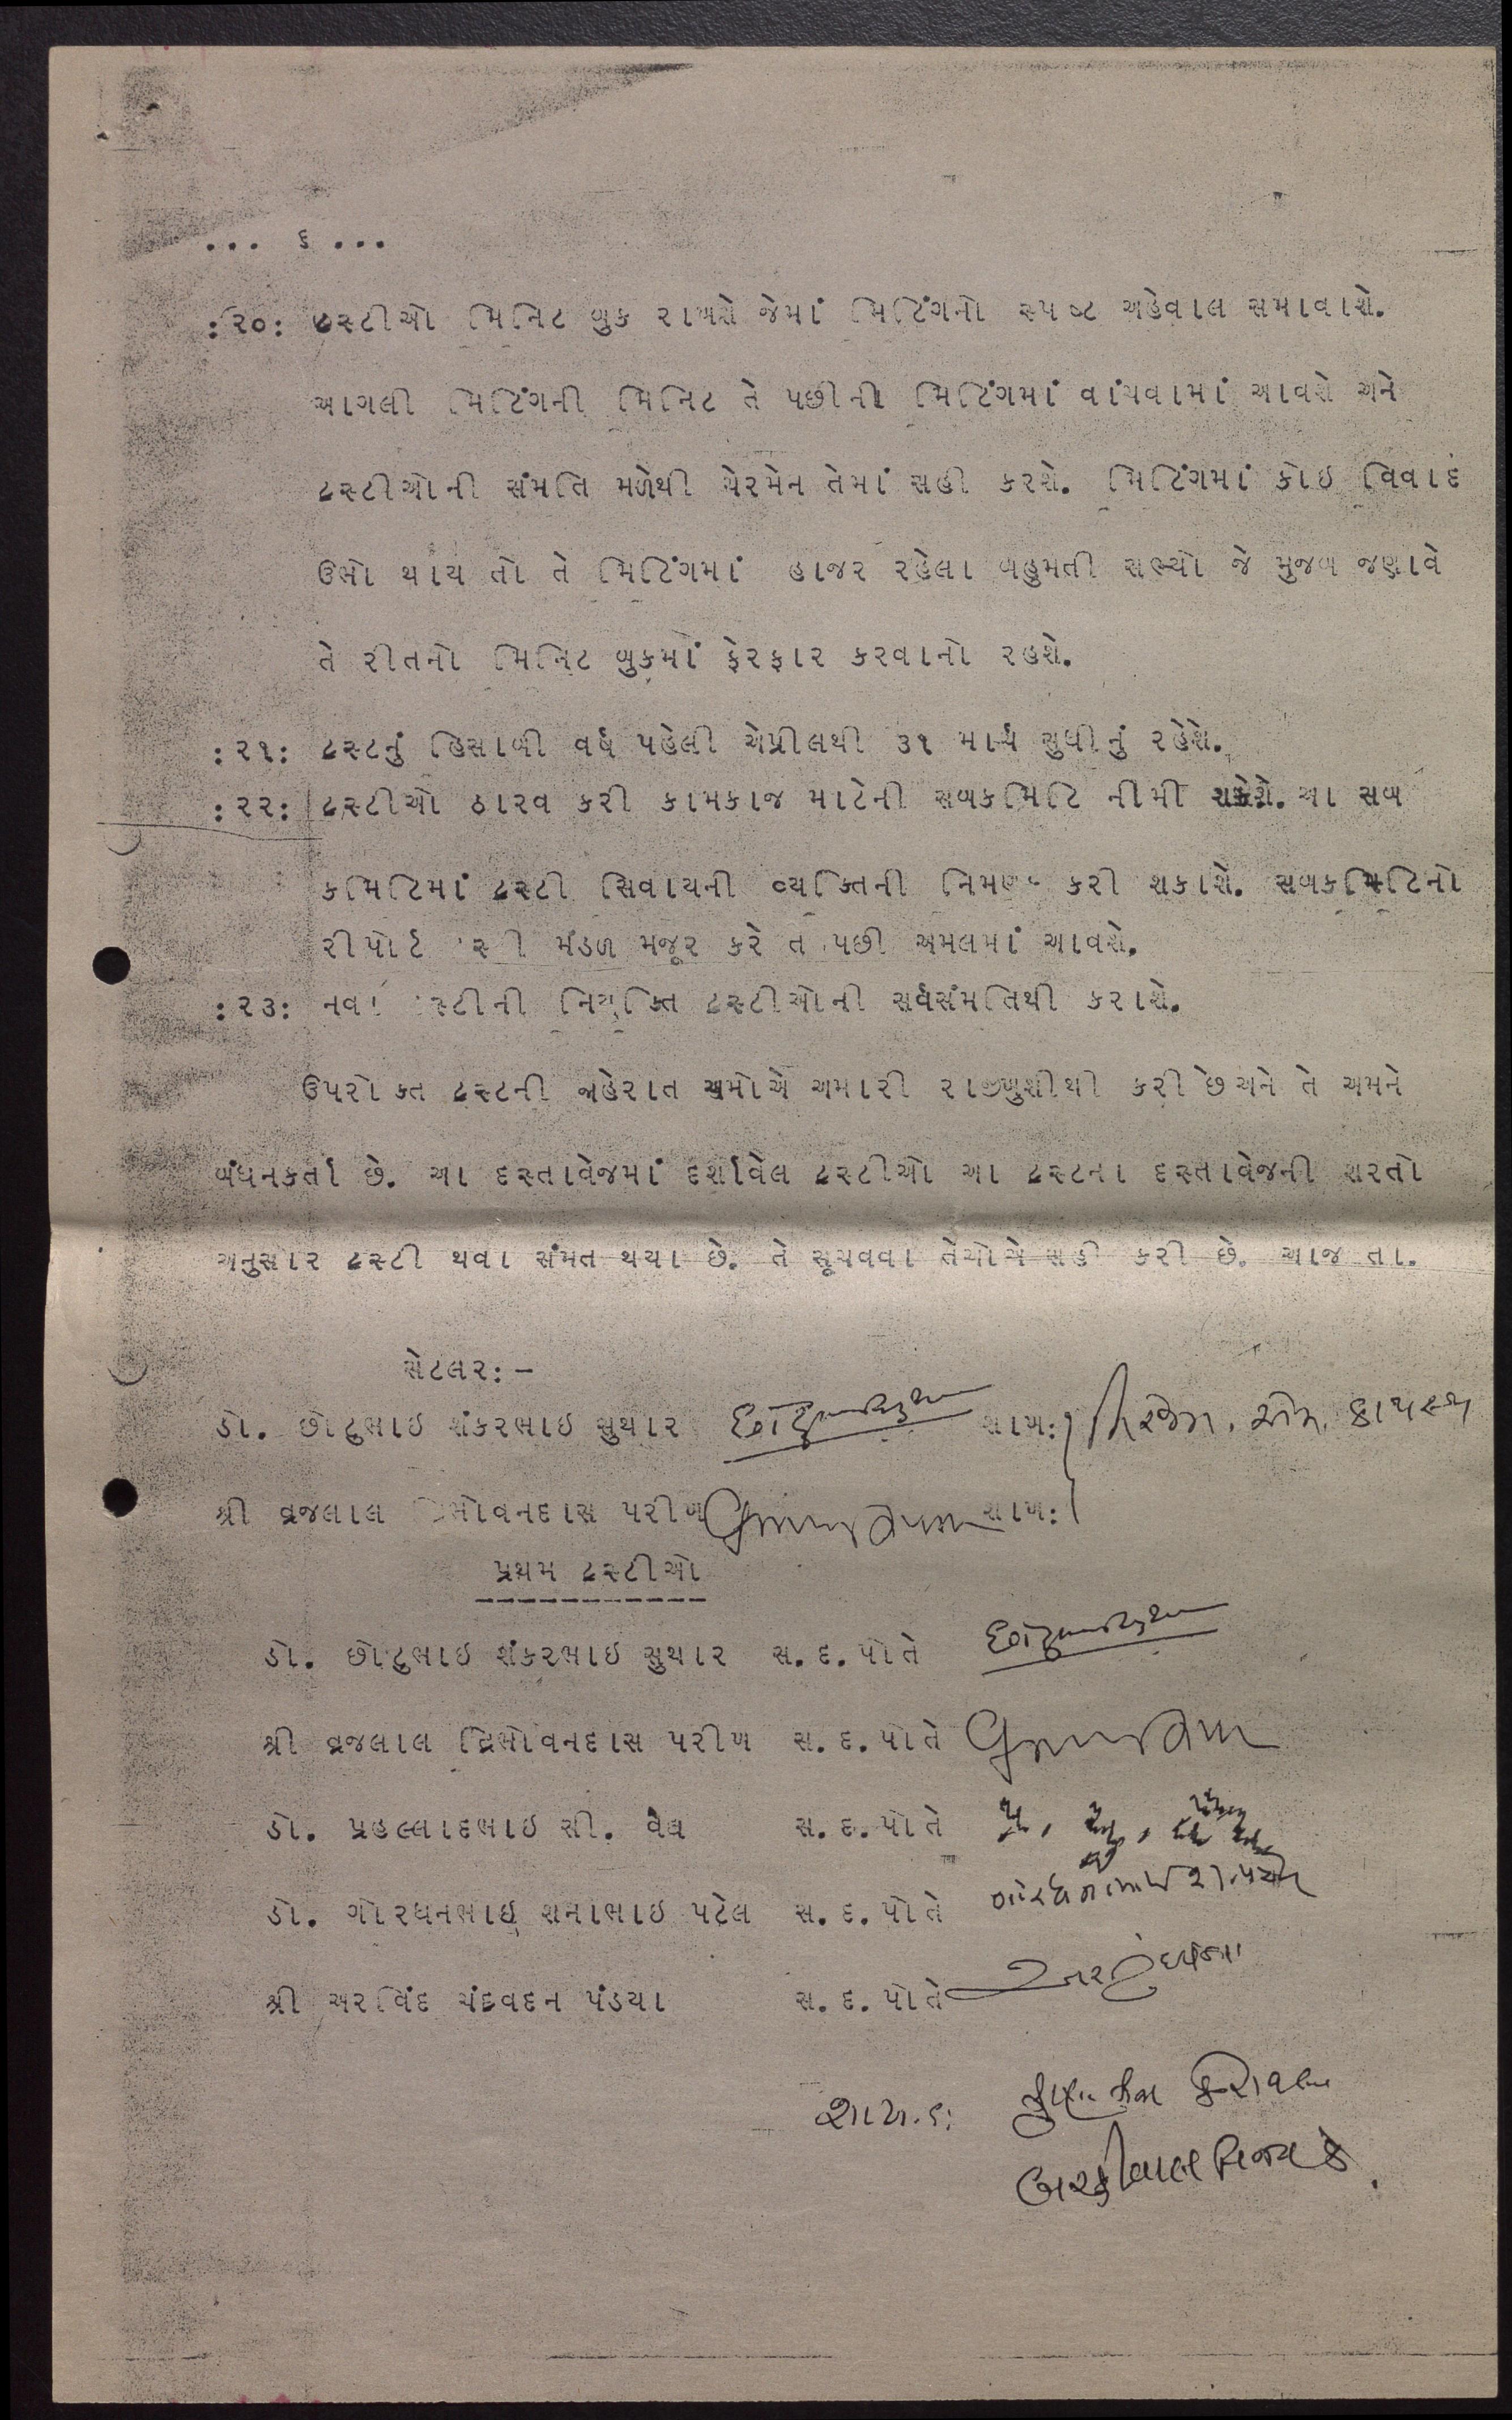 ... ૬ ...
:૨૦: ટ્રસ્ટીઓ મિનિટ બુક રાખશે જેમાં મિટિંગનો સ્પષ્ટ અહેવાલ સમાવાશે.
આગલી મિટિંગની મિનિટ તે પછીની મિટિંગમાં વાંચવામાં આવશે અને
ટ્રસ્ટીઓની સંમતિ મળેથી ચેરમેન તેમાં સહી કરશે. મિટિંગમાં કોઇ વિવાદ
ઉભો થાય તો તે મિટિંગમાં હાજર રહેલા બહુમતી સભ્યો જે મુજબ જણાવે
તે રીતનો મિનિટ બુકમાં ફેરફાર કરવાનો રહશે.
:૨૧: ટ્રસ્ટનું હિસાબી વર્ષ પહેલી એપ્રીલથી ૩૧ માર્ચ સુધીનું રહેશે.
:૨૨: ટ્રસ્ટીઓ ઠારવ કરી કામકાજ માટેની સબકમિટિ નીમી શકેશે. આ સબ
કમિટિમાં ટ્રસ્ટી સિવાયની વ્યક્તિની કરી શકાશે. સબકમિટિનો
રીપોર્ટ મંડળ મજૂર કરે ત પછી અમલમાં આવશે.
:૨૩: નિયુક્તિ ટ્રસ્ટીઓની સર્વસંમતિથી કરાશે.
ઉપરોક્ત ટ્રસ્ટની જાહેરાત અમોએ અમારી રાજીખુશીથી કરી છે અને તે અમને
બંધનકર્તા છે. આ દસ્તાવેજમાં દર્શાવેલ ટ્રસ્ટીઓ આ ટ્રસ્ટના દસ્તાવેજની શરતો
અનુસાર ટ્રસ્ટી થવા સંમત થયા છે. તે સૂચવવા તેઓએ સહી કરી છે. આજ તા.
સેટલર:-
ડો. છોટુભાઇ શંકરભાઇ સુથાર શાખ: એમ. કાયસ્થ
શ્રી વ્રજલાલ ત્રિભોવનદાસ પરીખ શાખ:
પ્રથમ ટ્રસ્ટીઓ
ડો. છોટુભાઇ શંકરભાઇ સુથાર સ.દ.પોતે
શ્રી વ્રજલાલ ત્રિભોવનદાસ પરીખ સ.દ.પોતે
ડો. પ્રહલ્લાદભાઇ સી. વૈદ્ય સ.દ.પોતે
ડો. ગોરધનભાઇ શનાભાઇ પટેલ સ.દ.પોતે
શ્રી અરવિંદ ચંદ્રવદન પંડયા સ.દ.પોતે